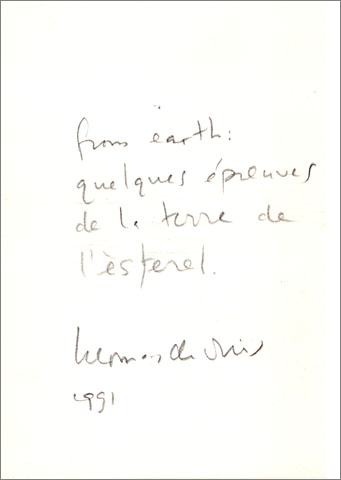 from earth:
quelques épreuves
de la terre de
l'èsterel.
herman de vries
1991